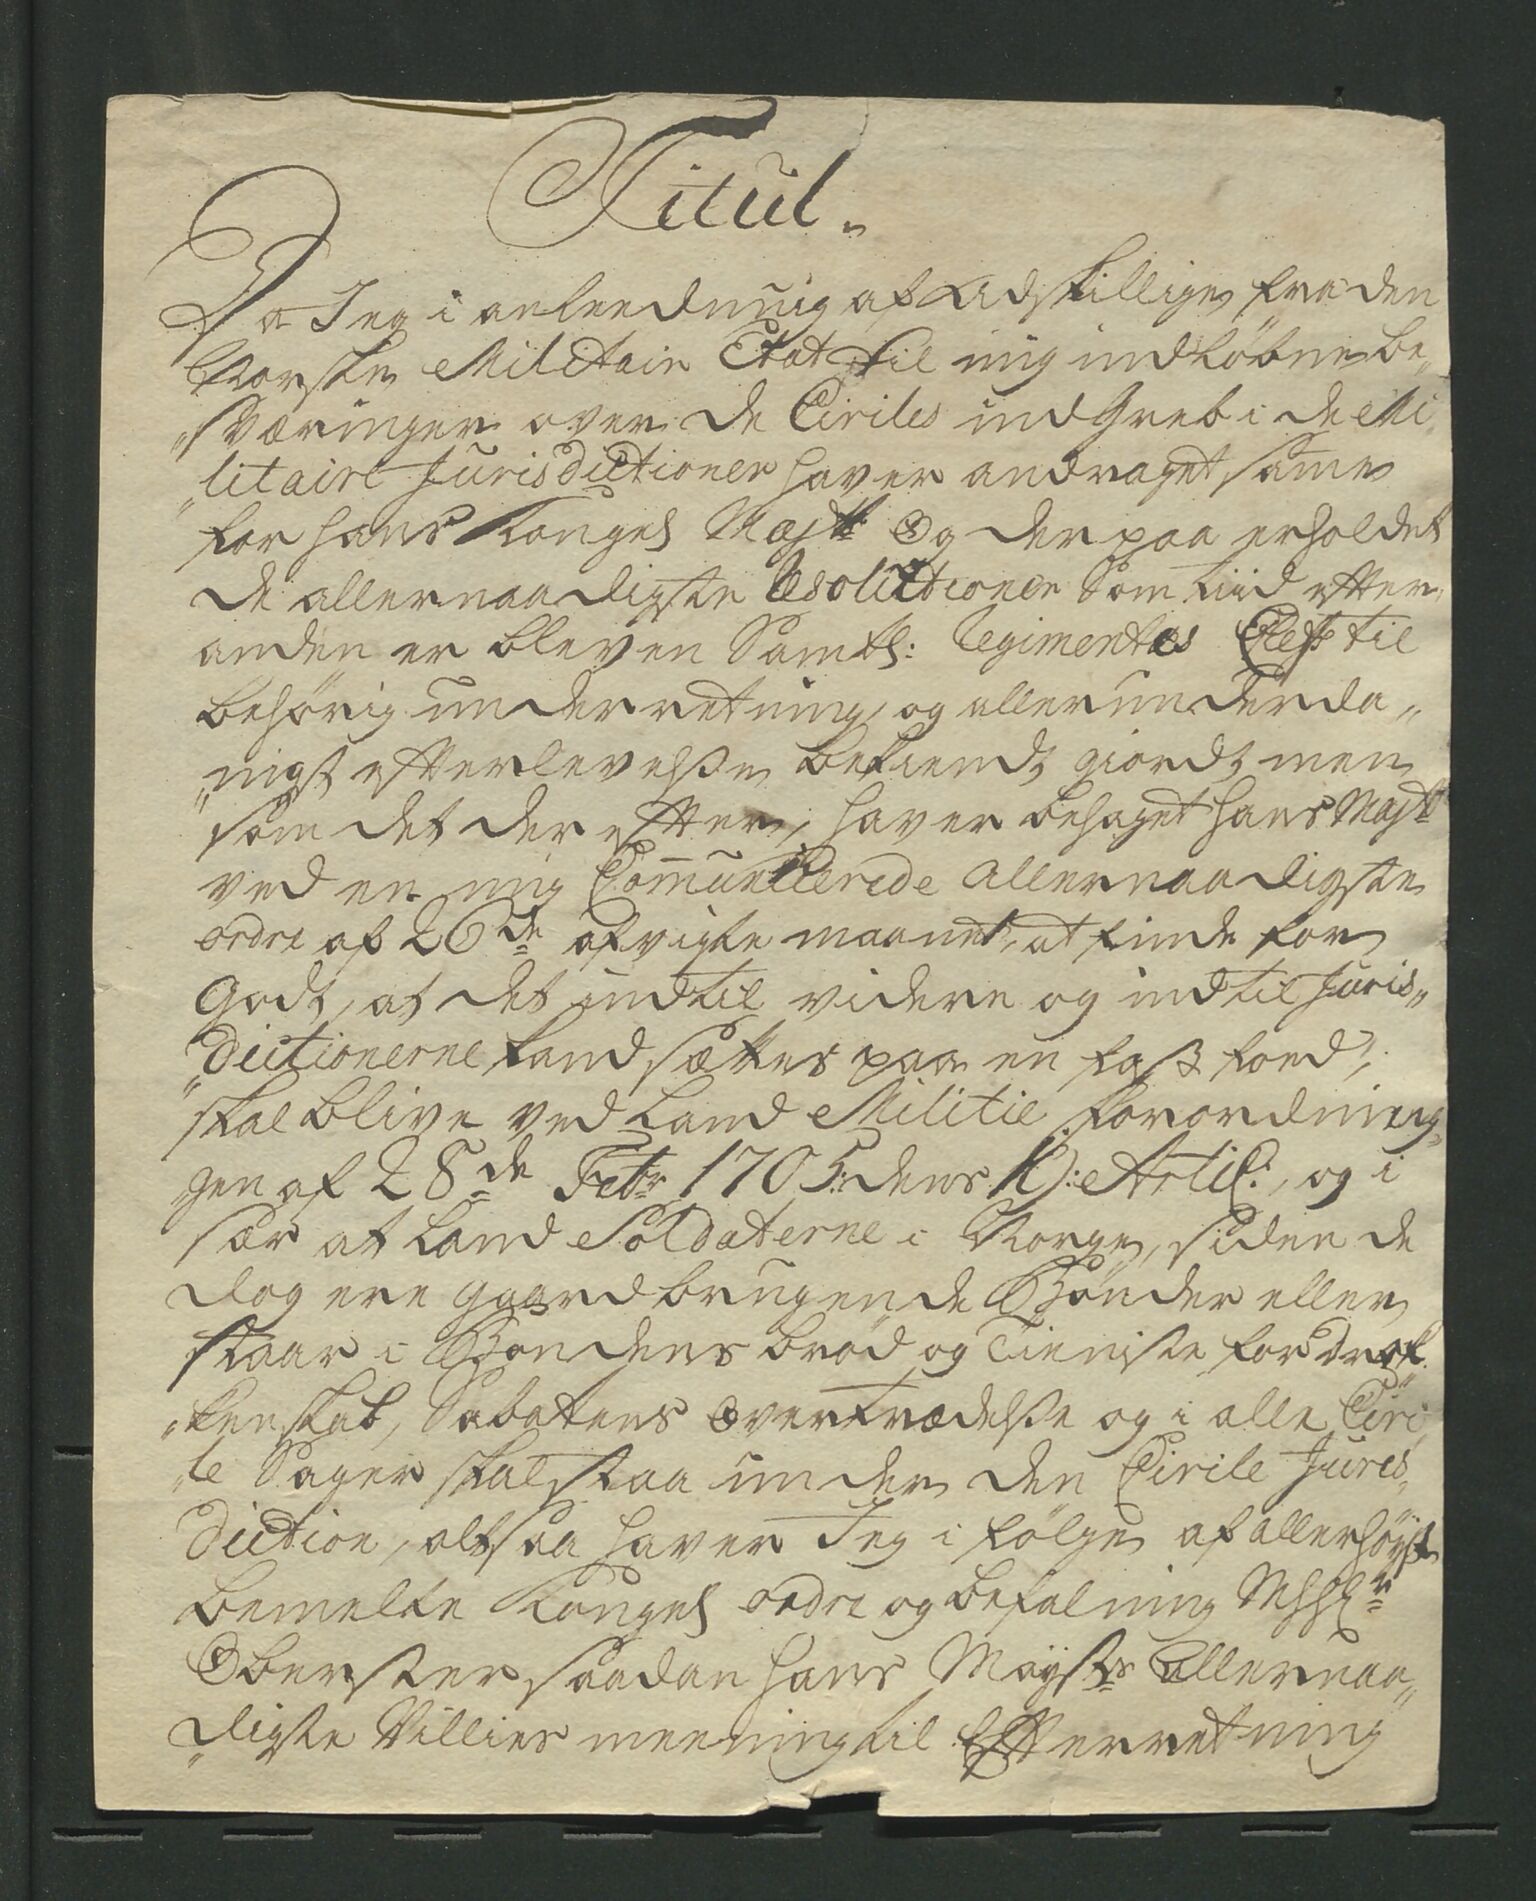 Titul.
Da Jeg i anleedning af Adskillige fra den
Norske Militair Etat til mig indløbne be„
„sværinger over de Civiles indGreb i de Mi„
„litaire Jurisdictioner haver andraget samme
for hans Kongel Maytt Og der paa erholdet
de allernaadigste Resolutioner Som tiid efter
anden er bleven Samtl: Regimentes Chefs til
behørig underretning, og allerunderda„
„nigst efterlevelse bekiendt giordt, men
som det der efter, haver behaget hans Maytt
ved en mig Communicerede allernaadigste
ordre af 26de afvigte maanet, at finde for
Godt, at det indtil videre og indtil Juris„
„dictionerne kand sættes paa en fast foed,
skal blive ved Land Militie forordnin„
gen af 28de Febr 1705: dens 19: Articl:, og i
sær at Land Soldaterne i Norge, siden de
dog ere gaardbrugende Bønder eller
staar i Bondens brød og Tieniste for druk„
„kenskab, Sabatens Overtrædelse og i alle Civi„
„le Sager skal staa under den Civile Juris„
diction, altsaa haver Jeg i følge af allerhøyst
bemelte Kongel ordre og befalning
Oberster saadan hans Maysts allernaa„
„digste Villies meening til Efterretning